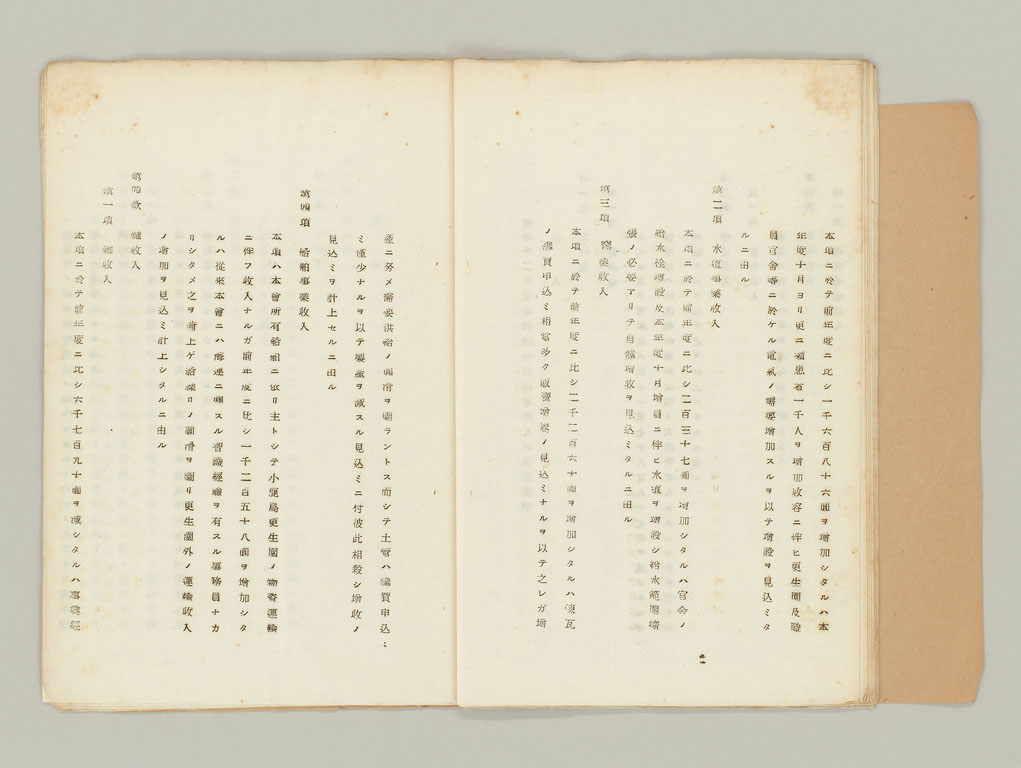 本項ニ於テ前年度ニ比シ一千六百八十六圓ヲ增加シタルハ本
年度十月ヨリ更ニ患者一千人ヲ增加收容ニ伴ヒ更生園及職
員官舍等ニ於ケル電氣ノ需要增加スルヲ以テ增設ヲ見込ミタ
ルニ由ル
第二項 水道事業收入
本項ニ於テ前年度ニ比シ二百三十七圓ヲ增加シタルハ官舍ノ
給水栓增設及本年度十月增員ニ伴ヒ水道ヲ增設シ給水範圍擴
張ノ必要アリテ自然增收ヲ見込ミタルニ由ル
第三項 窯業收入
本項ニ於テ前年度ニ比シ二千二百六十圓ヲ增加シタルハ煉瓦
ノ購買申込ミ相當多ク販賣增ノ見込ミナルヲ以テ之レガ增
產ニ努メ需要供給ノ圓滑ヲ圖ラントス而シテ土管ハ購買申込ミ
ミ僅少ナルヲ以テ製產ヲ減スル見込ミニ付彼此相殺シ增收ノ
見込ミヲ計上セルニ由ル
第四項 船舶事業收入
本項ハ本會所有船舶ニ依リ主トシテ小鹿島更生園ノ物資運輸
ニ伴フ收入ナルガ前年度ニ比シ一千二百五十八圓ヲ增加シタ
ルハ從來本會ニハ海運ニ關スル智識經驗ヲ有スル事務員ナカ
リシタメ之ヲ計上ゲ船繰リノ圓滑ヲ圖リ更生園外ノ運輸收入
ノ增加ヲ見込ミ計上シタルニ由ル
第四款 雜收入
第一項 雜收入
本項ニ於テ前年度ニ比シ六千七百九十圓ヲ減シタルハ事業經